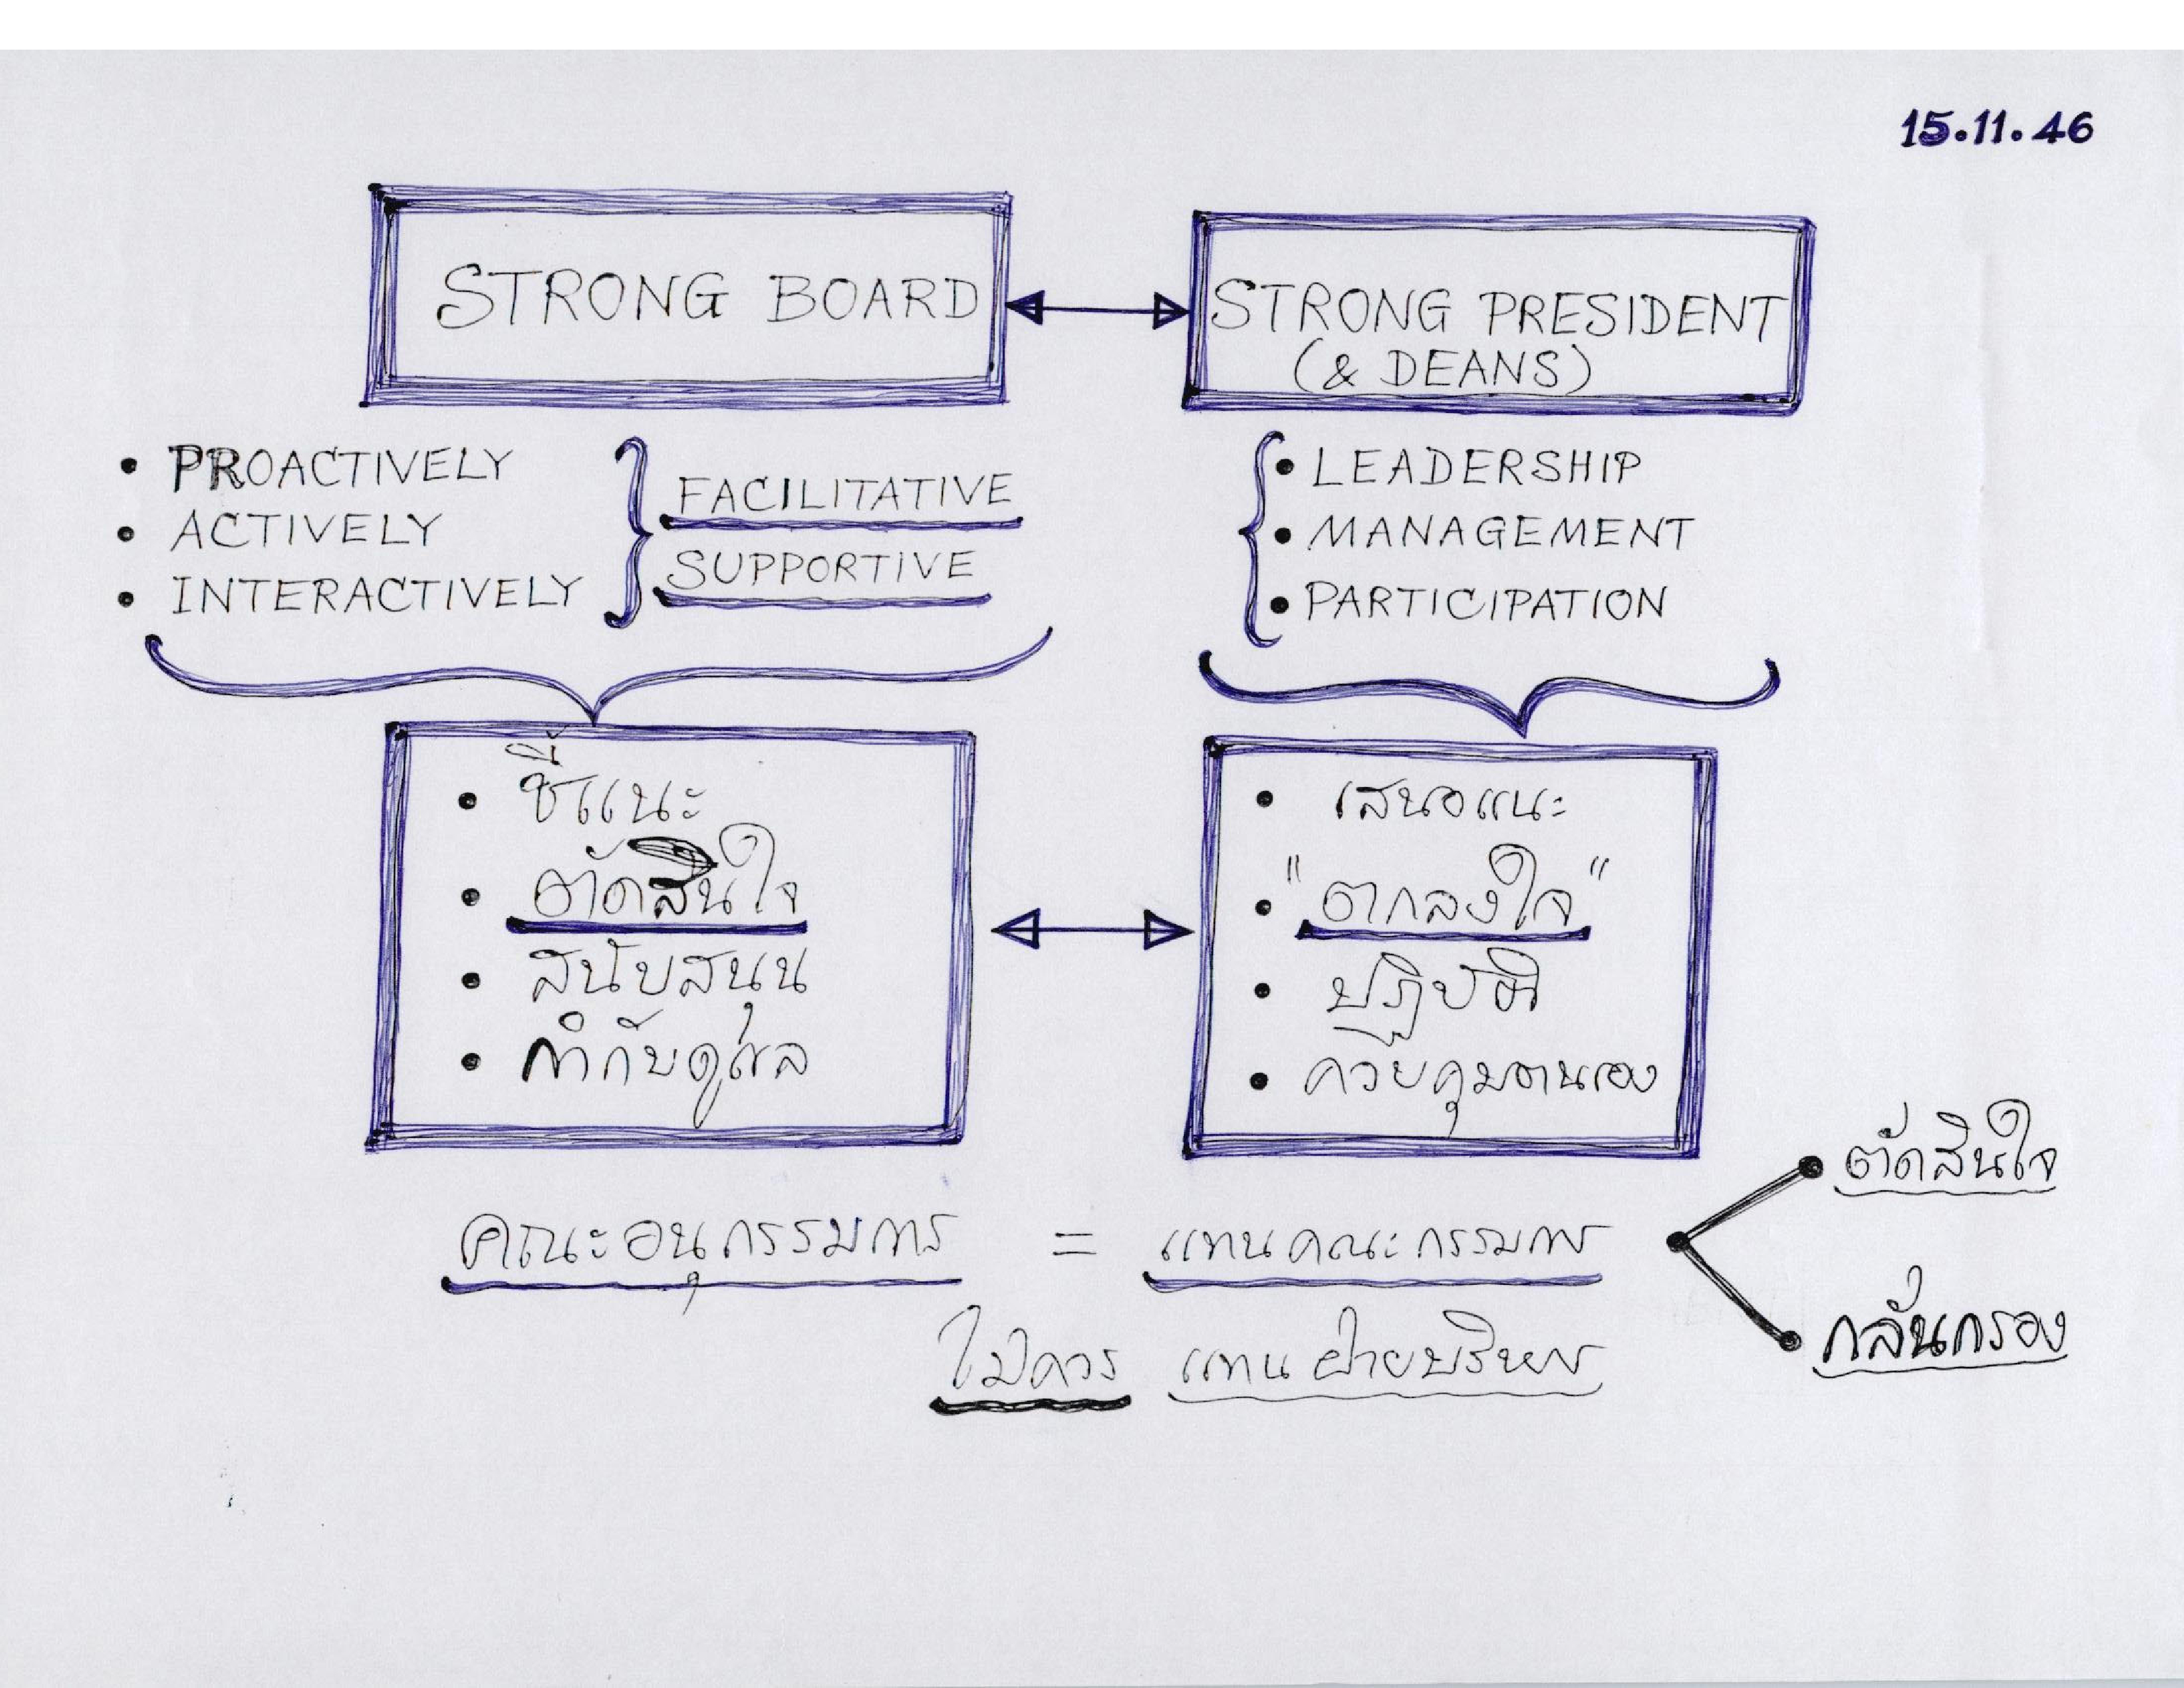 15.11.46
STRONG BOARD
STRONG PRESIDENT
(& DEANS)
• PROACTIVELY
• ACTIVELY
• INTERACTIVELY
FACILITATIVE
SUPPORTIVE
• LEADERSHIP
• MANAGEMENT
• PARTICIPATION
• ชี้แนะ
• ตัดสินใจ
• สนับสนุน
• กำกับดูแล
• เสนอแนะ
• "ตกลงใจ"
• ปฏิบัติ
• ควบคุมตนเอง
คณะอนุกรรมการ = แทนคณะกรรมการ
ตัดสินใจ
กลั่นกรอง
ไม่ควร แทนฝ่ายบริหาร